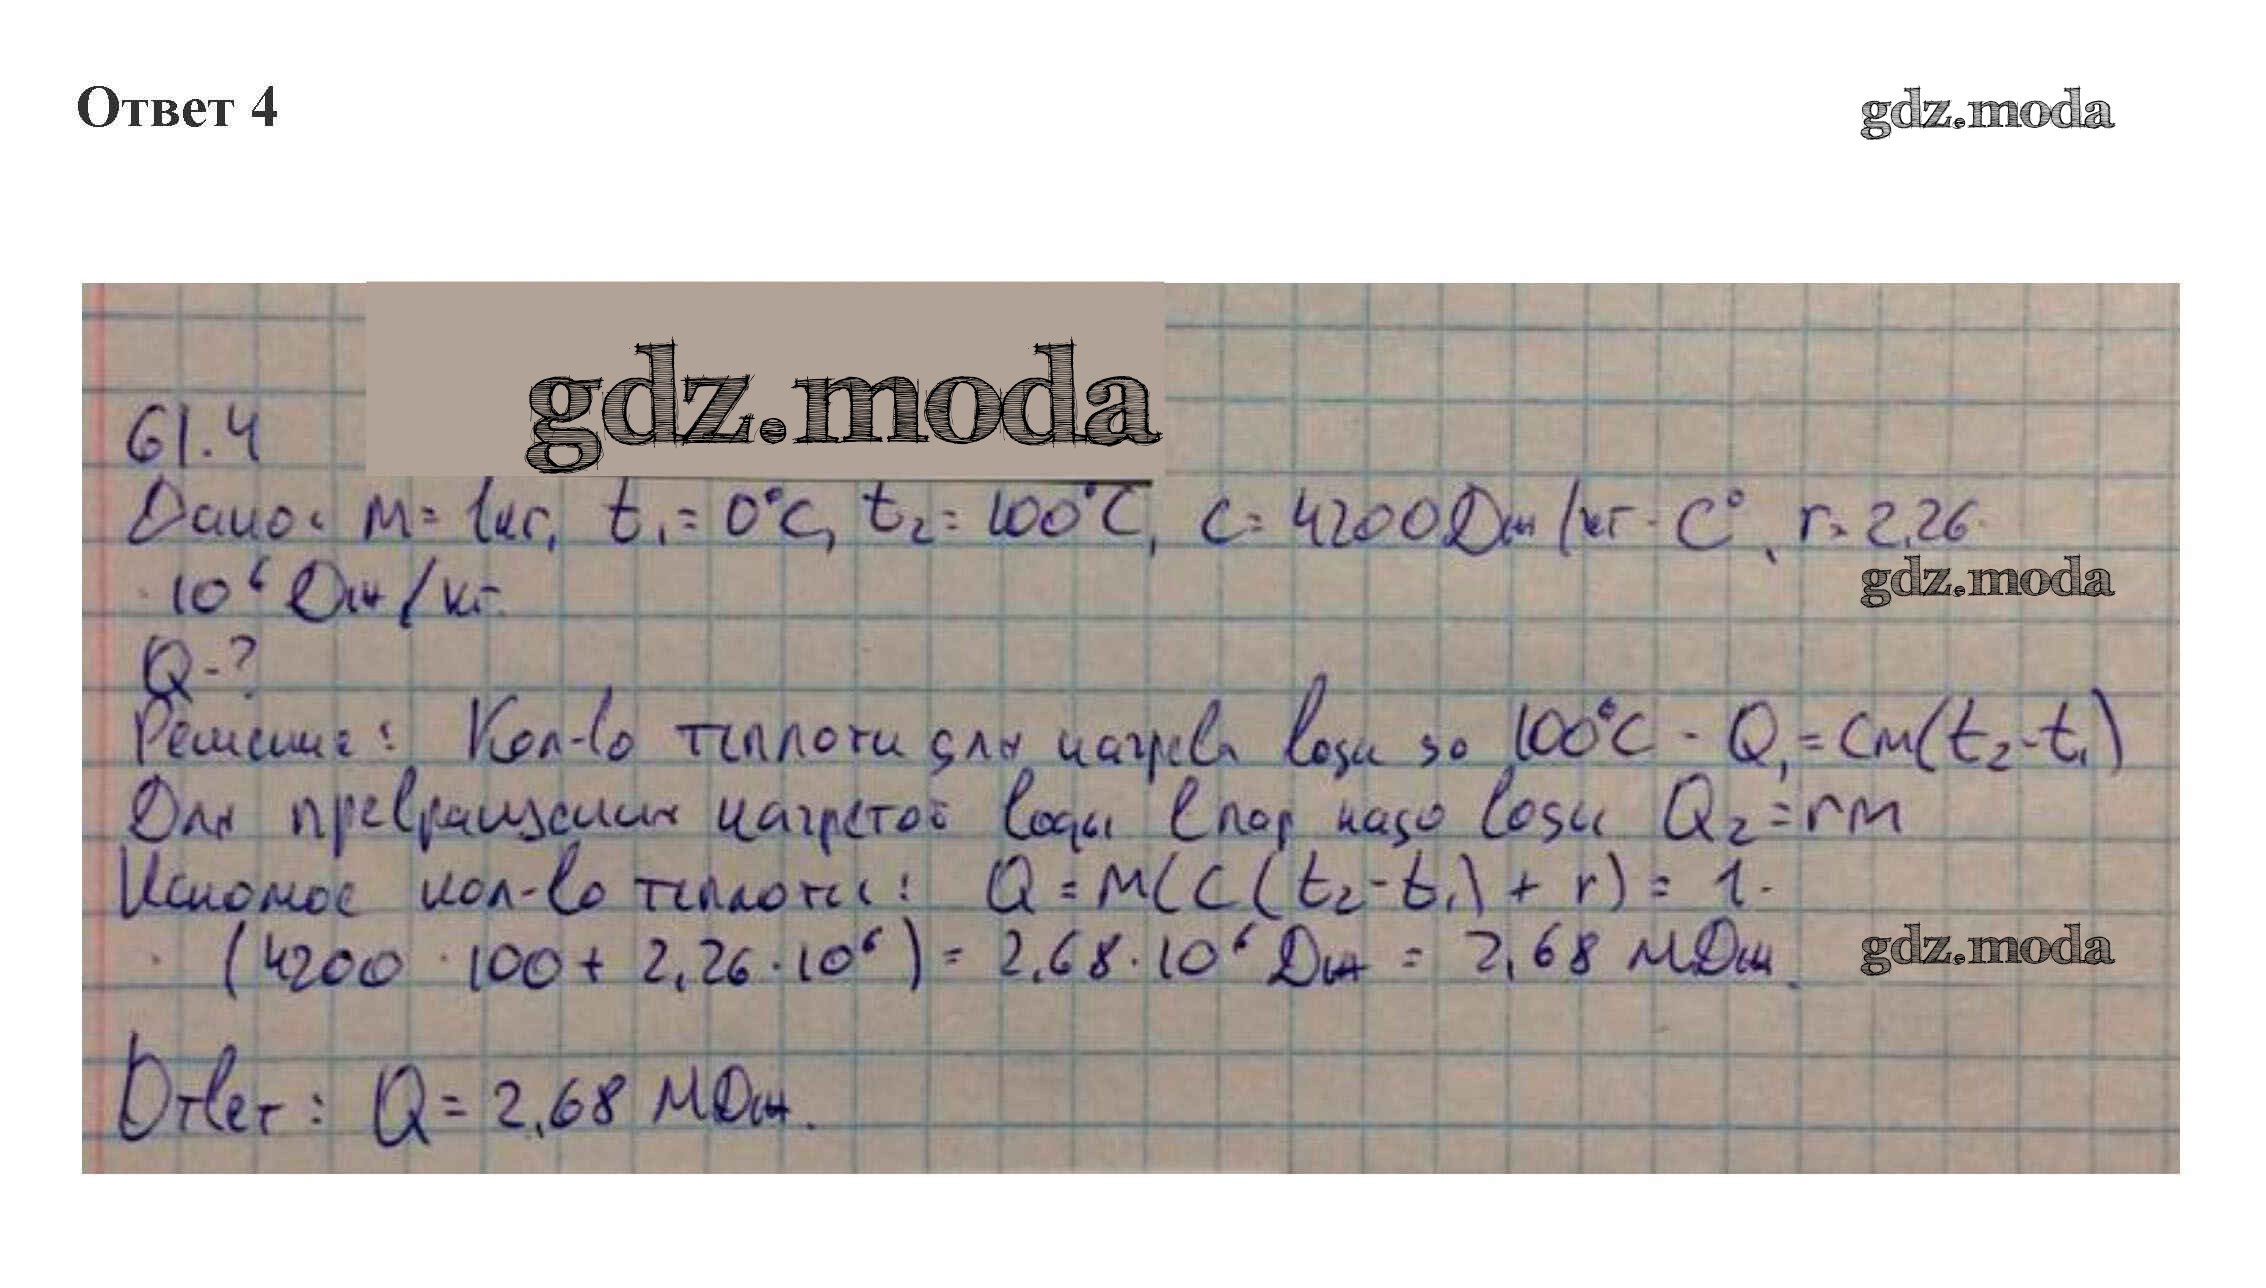 Ответ 4
gdz.moda
gdz.moda
61.4
Дано: m = 1кг, t₁ = 0°C, t₂ = 100°C, c = 4200Дж/кг · C°, r = 2,26 ·
gdz.moda
· 10⁶ Дж/кг.
Q - ?
Решение: Кол-во теплоты для нагрева воды до 100°C - Q₁ = cm(t₂ - t₁)
Для превращения нагретой воды в пар надо воды Q₂ = rm
Искомое кол-во теплоты: Q = m(c(t₂ - t₁) + r) = 1 ·
· (4200 · 100 + 2,26 · 10⁶) = 2,68 · 10⁶ Дж = 2,68 МДж.
gdz.moda
Ответ: Q = 2,68 МДж.